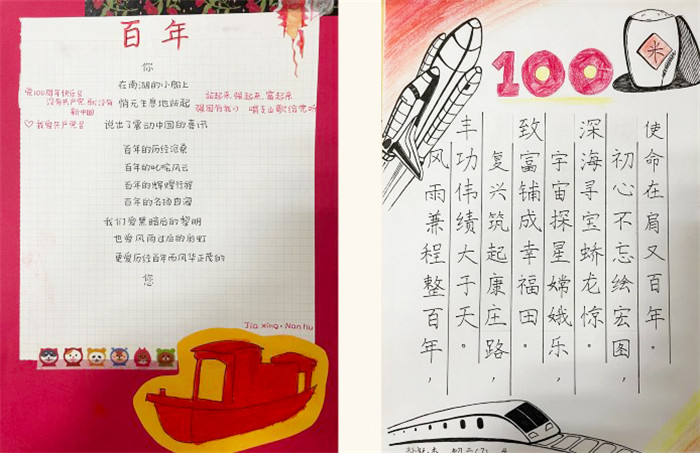 百年
你
在南湖的小船上
悄无声息地站起
说出了震动中国的喜讯
百年的历经沧桑
百年的叱咤风云
百年的辉煌行程
百年的名扬四海
我们爱黑暗后的黎明
也爱风雨过后的彩虹
更爱历经百年而风华正茂的
您
党100周年快乐!
没有共产党,就没有
新中国
♡我爱共产党!
站起来,强起来,富起来
唱支山歌给党听
Jia xing·Nan hu
100
米
风雨兼程整百年,
丰功伟绩大于天。
复兴筑起康庄路,
致富铺成幸福田。
宇宙探星嫦娥乐,
深海寻宝蛟龙惊。
初心不忘绘宏图,
使命在肩又百年。
初二(7)